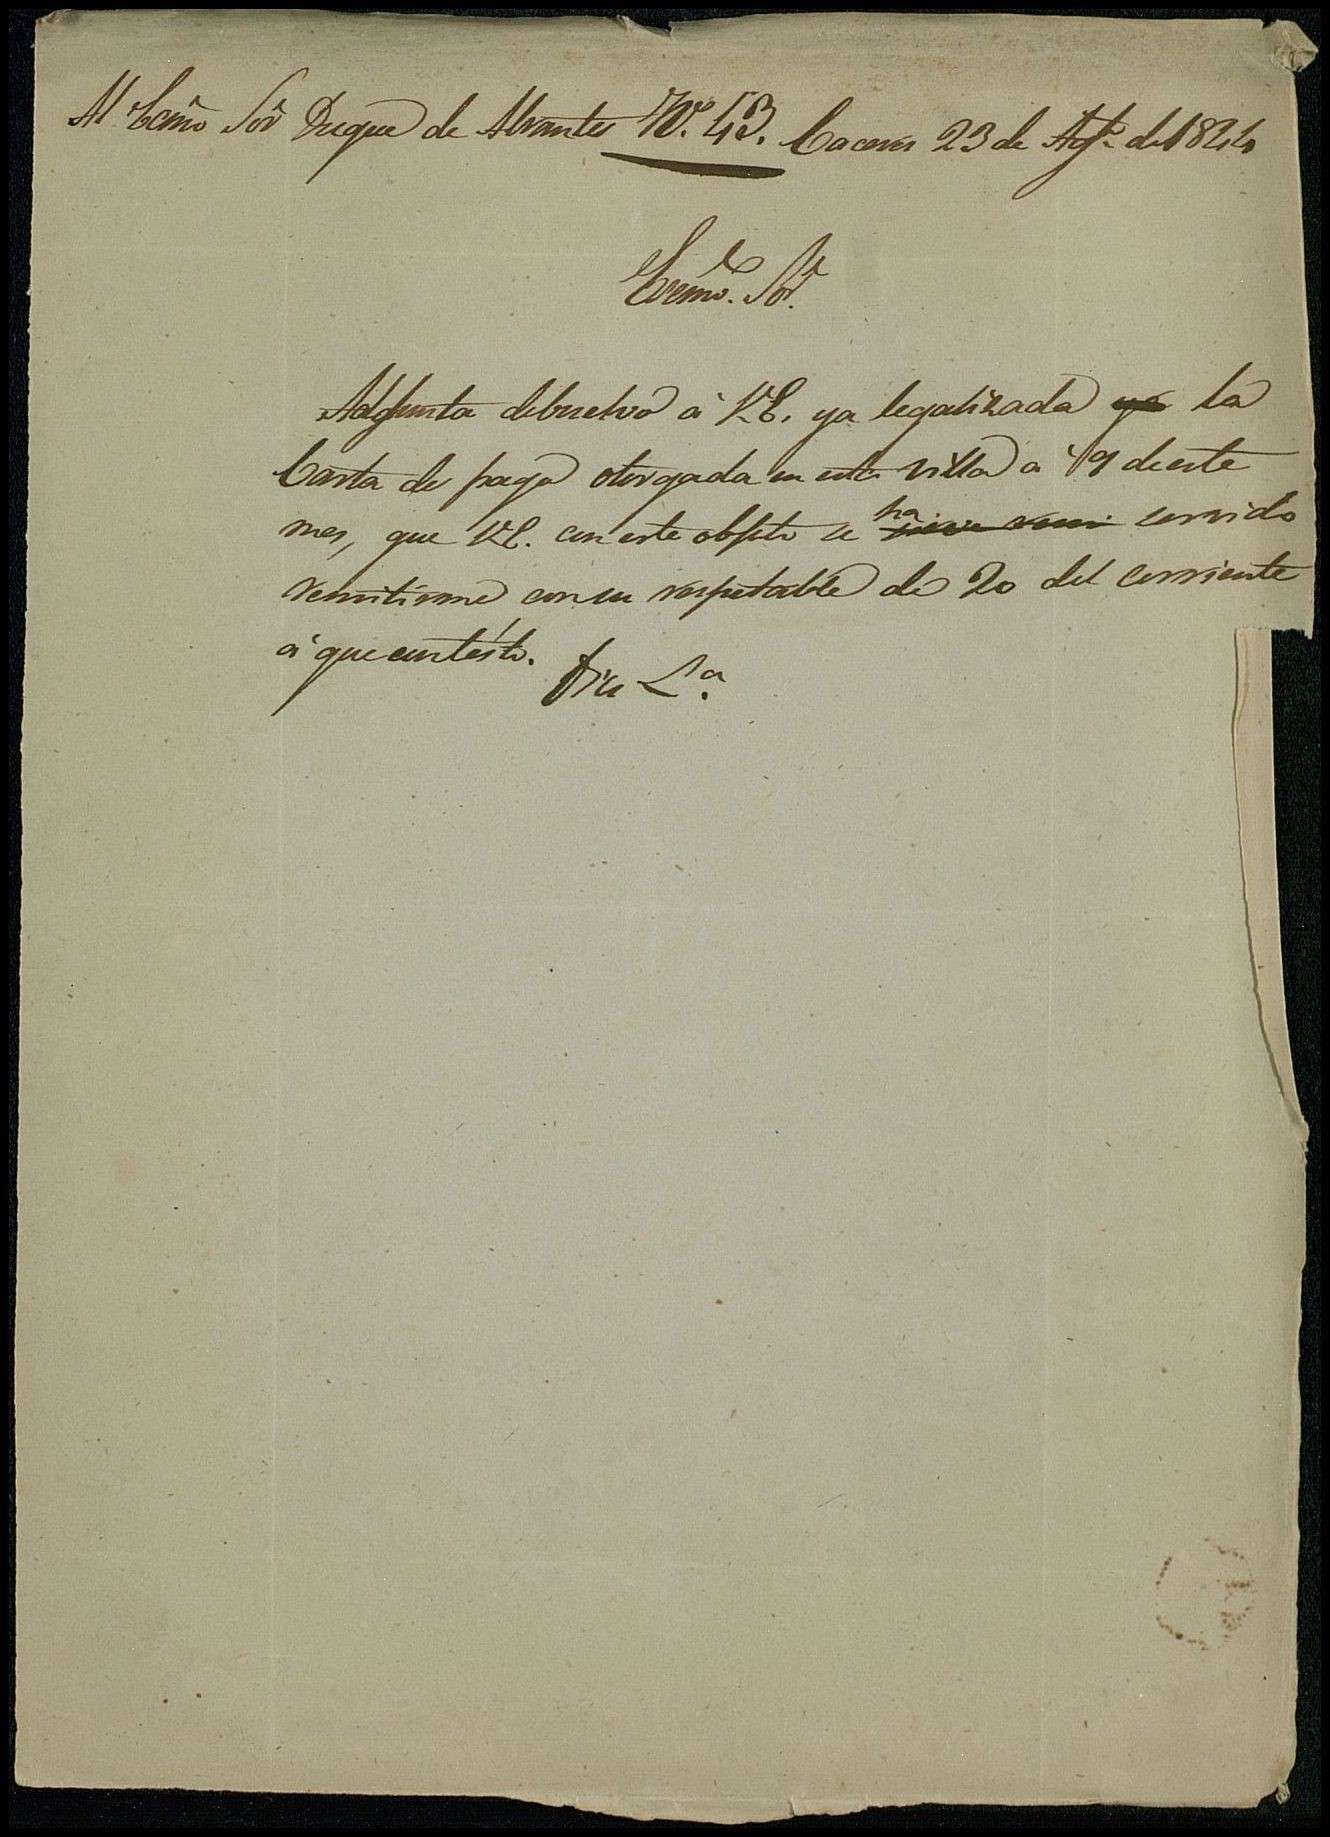 Al Ecmõ Sõr Duque de Abrantes Nº. 43. Caceres 23 de Agtº. de 1844
Excmo. Sor.
Adjunta debuelvo á V.E. ya legalizada ya la
Carta de pago otorgada en esta villa a 19 de este
mes, que V.E. con este objeto se ha servido
remitirme con su respetable de 20 del corriente
á que contésto.